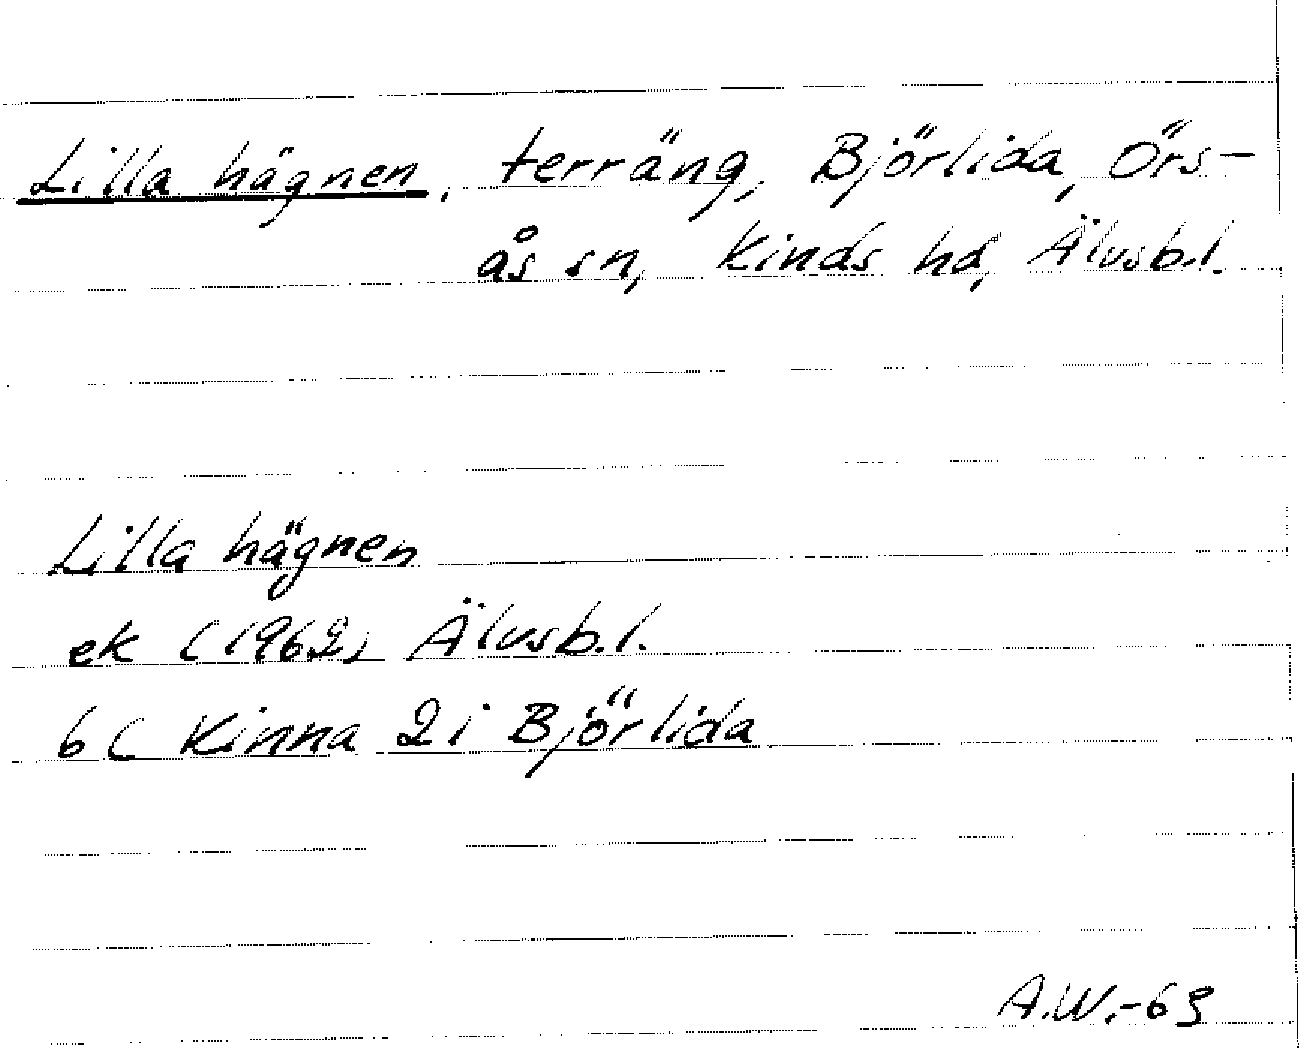 Lilla hägnen, terräng, Björlida, Örs-
ås sn, Kinds hd, Älvsb.l.
Lilla hägnen
ek (1962) Älvsb.l.
6C Kinna 2i Björlida
A.W.-63